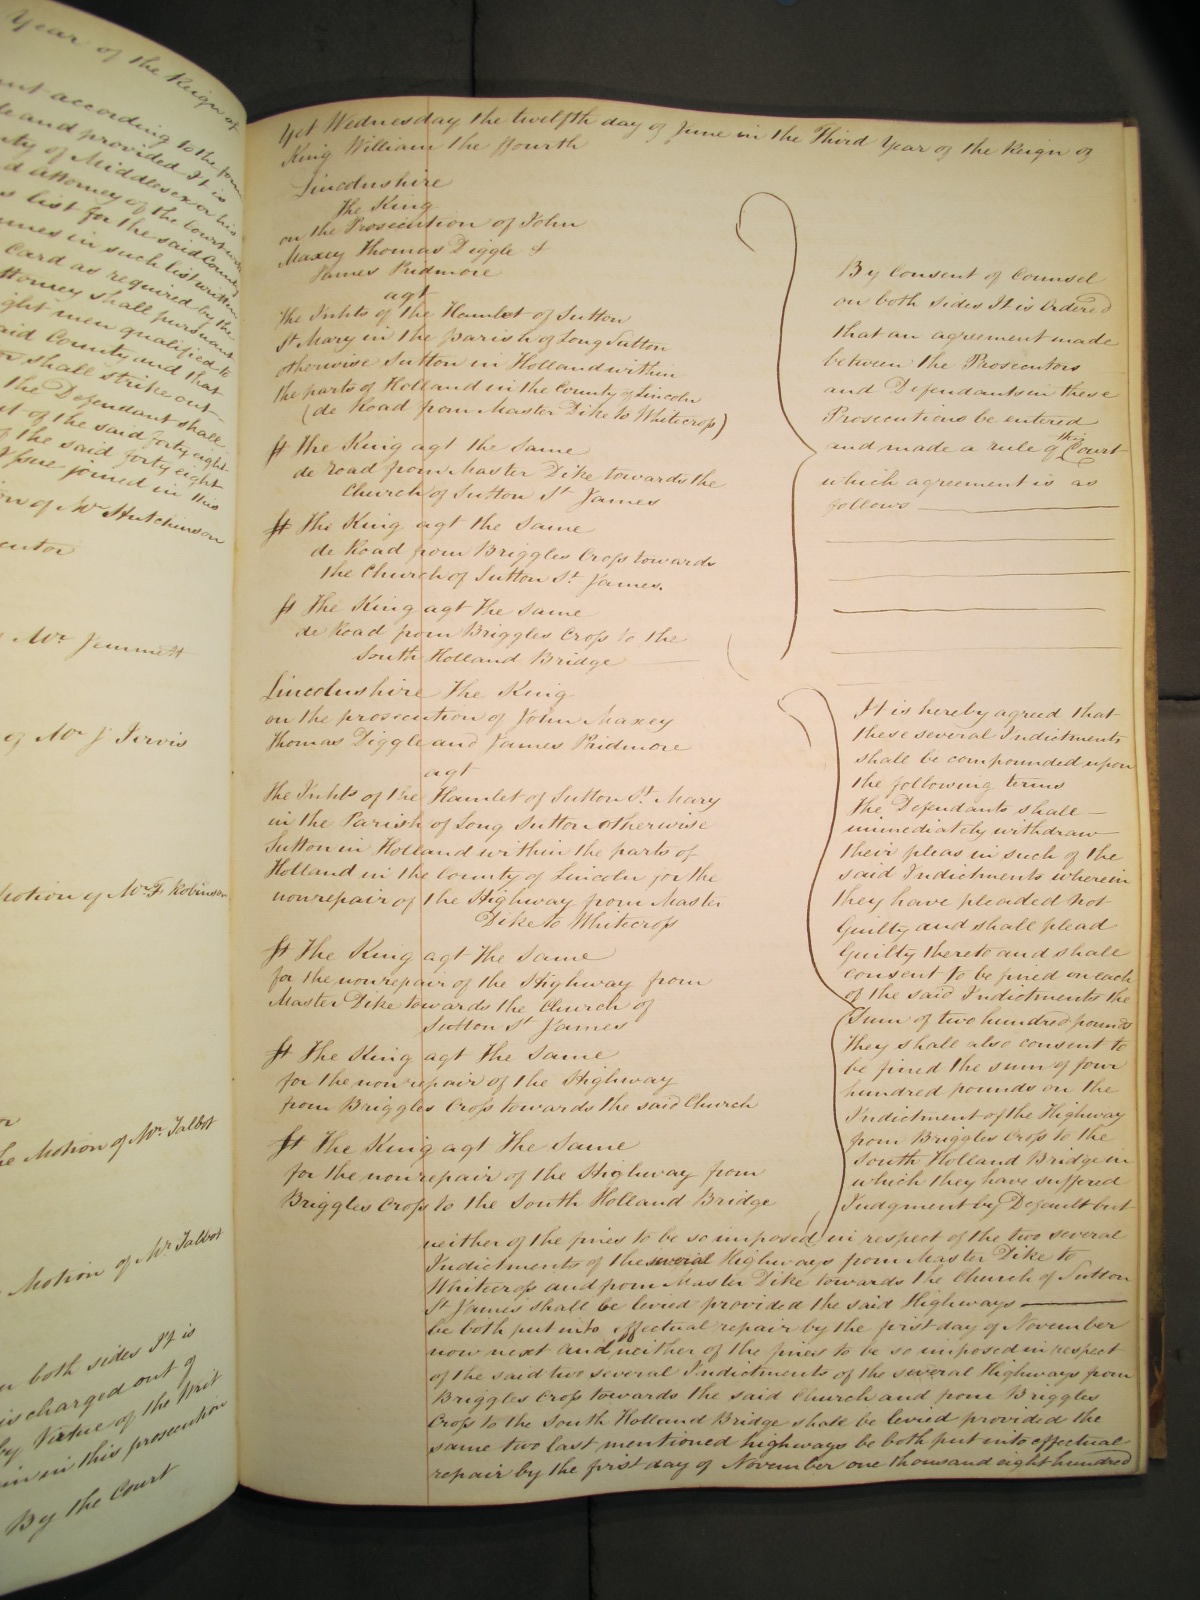 Year of the Reign of
ant according to the form
de and provided It is
nty of Middlesex or his
d attorney of the Court
s list for the said County
ames in such list written
Card as required by the
ttorney shall pursuant
ight men qualified to
aid County and that
or shall strike out
the Defendant shall
t of the said forty eight
f the said forty eight
Issue joined in this
on of Mr Hutchinson
cutor
Mr Jemmett
of Mr J Jervis
Motion of Mr F. Robinson
he Motion of Mr Talbot
Motion of Mr Talbot
n both sides It is
ischarged out of
by Virtue of the Writ
in in this prosecution
By the Court
Yet Wednesday the twelfth day of June in the Third Year of the Reign of
King William the ffourth
Lincolnshire
The King
on the Prosecution of John
Maxey Thomas Diggle &
James Pridmore
agt
The Inhts of the Hamlet of Sutton
St Mary in the parish of Long Sutton
otherwise Sutton in Holland within
the parts of Holland in the County of Lincoln
(de Road from Master Dike to Whitecross)
ft The King agt the Same
de road from Master Dike towards the
Church of Sutton St James
ft The King agt the Same
de Road from Briggles Cross towards
the Church of Sutton St James.
ft The King agt the Same
de Road from Briggles Cross to the
South Holland Bridge
By Consent of Counsel
on both sides It is Ordered
that an agreement made
between the Prosecutors
and Defendants in these
Prosecutions be entered
and made a rule of this Court
which agreement is as
follows
Lincolnshire The King
on the prosecution of John Maxey
Thomas Diggle and James Pridmore
agt
The Inhts of the Hamlet of Sutton St Mary
in the Parish of Long Sutton otherwise
Sutton in Holland within the parts of
Holland in the County of Lincoln for the
nonrepair of the Highway from Master
Dike to Whitecross
ft The King agt the Same
for the nonrepair of the Highway from
Master Dike towards the Church of
Sutton St James
ft The King agt the Same
for the nonrepair of the Highway
from Briggles Cross towards the said Church
ft The King agt The Same
for the nonrepair of the Highway from
Briggles Cross to the South Holland Bridge
It is hereby agreed that
these several Indictments
shall be compounded upon
the following terms
The Defendants shall
immediately withdraw
their pleas in such of the
said Indictments wherein
they have pleaded Not
Guilty and shall plead
Guilty thereto and shall
consent to be fined on each
of the said Indictments the
Sum of two hundred pounds
they shall also consent to
be fined the sum of four
hundred pounds on the
Indictment of the Highway
from Briggles Cross to the
South Holland Bridge in
which they have suffered
Judgment by Default but
neither of the fines to be so imposed in respect of the two several
Indictments of the several Highways from Master Dike to
Whitecross and from Master Dike towards the Church of Sutton
St James shall be levied provided the said Highways
be both put into effectual repair by the first day of November
now next and neither of the fines to be so imposed in respect
of the said two several Indictments of the several Highways from
Briggles Cross towards the said Church and from Briggles
Cross to the South Holland Bridge shall be levied provided the
same two last mentioned highways be both put into effectual
repair by the first day of November one thousand eight hundred